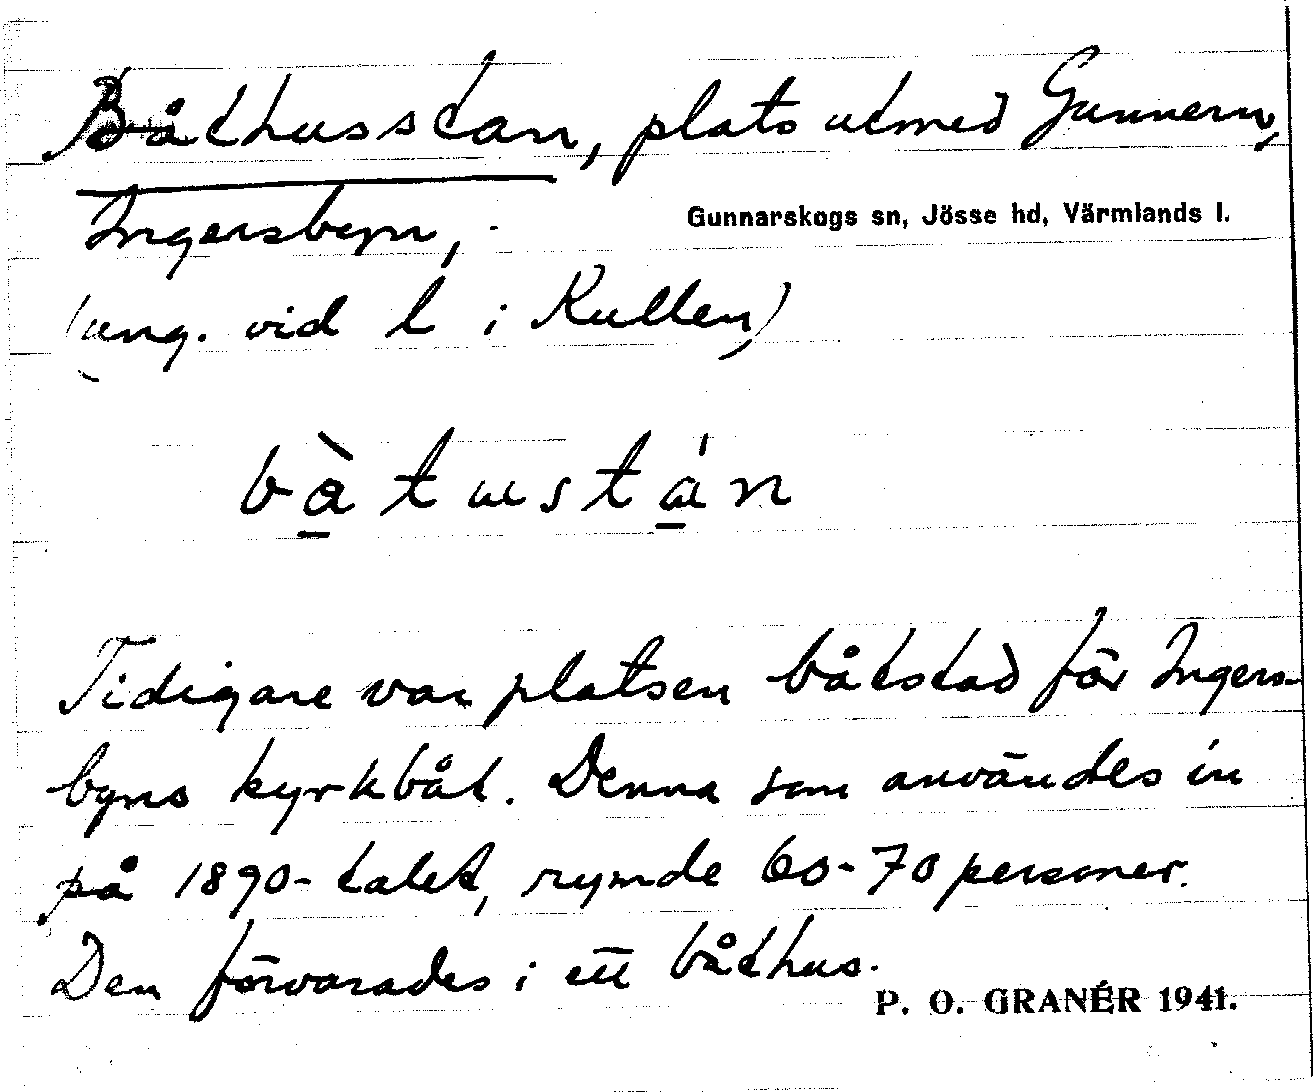 Båthusstan, plats utmed Gunnern,
Ingersbyn,
Gunnarskogs sn, Jösse hd, Värmlands l.
(ung. vid l i Kullen)
bàtustán
Tidigare var platsen båtstad för Ingers-
byns kyrkbåt. Denna som användes in
på 1890-talet, rymde 60-70 personer.
Den förvarades i ett båthus.
P. O. GRANÉR 1941.